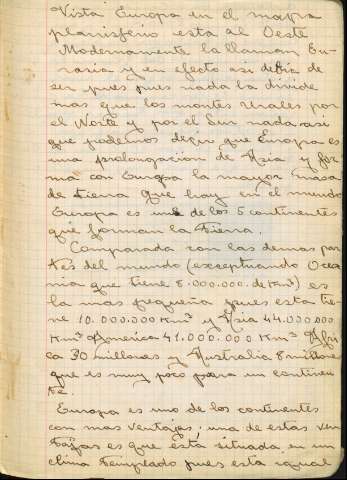 Vista Europa en el mapa
planisferio está al Oeste
Modernamente la llaman Eu-
rasia y en efecto asi debia de
ser pues pues nada la divide
mas que los montes Urales por
el Norte y por el Sur nada asi
que podemos decir que Europa es
una prolongacion de Asia y for
ma con Europa la mayor masa
de tierra que hay en el mundo
Europa es uno de los 5 continentes
que forman la tierra.
Comparada con las demas par
tes del mundo (exceptuando Ocea
nia que tiene 8.000.000 de Km²) es
la mas pequeña pues esta tie-
ne 10.000.000 Km² y Asia 44.000.000
Km² America 41.000.000 Km² Afri
ca 30 millones y Australia 8 millones
que es muy poco para un continen
te.
Europa es uno de los continentes
con mas ventajas; una de estas ven
tajas es que está situada en un
clima templado pues está igual